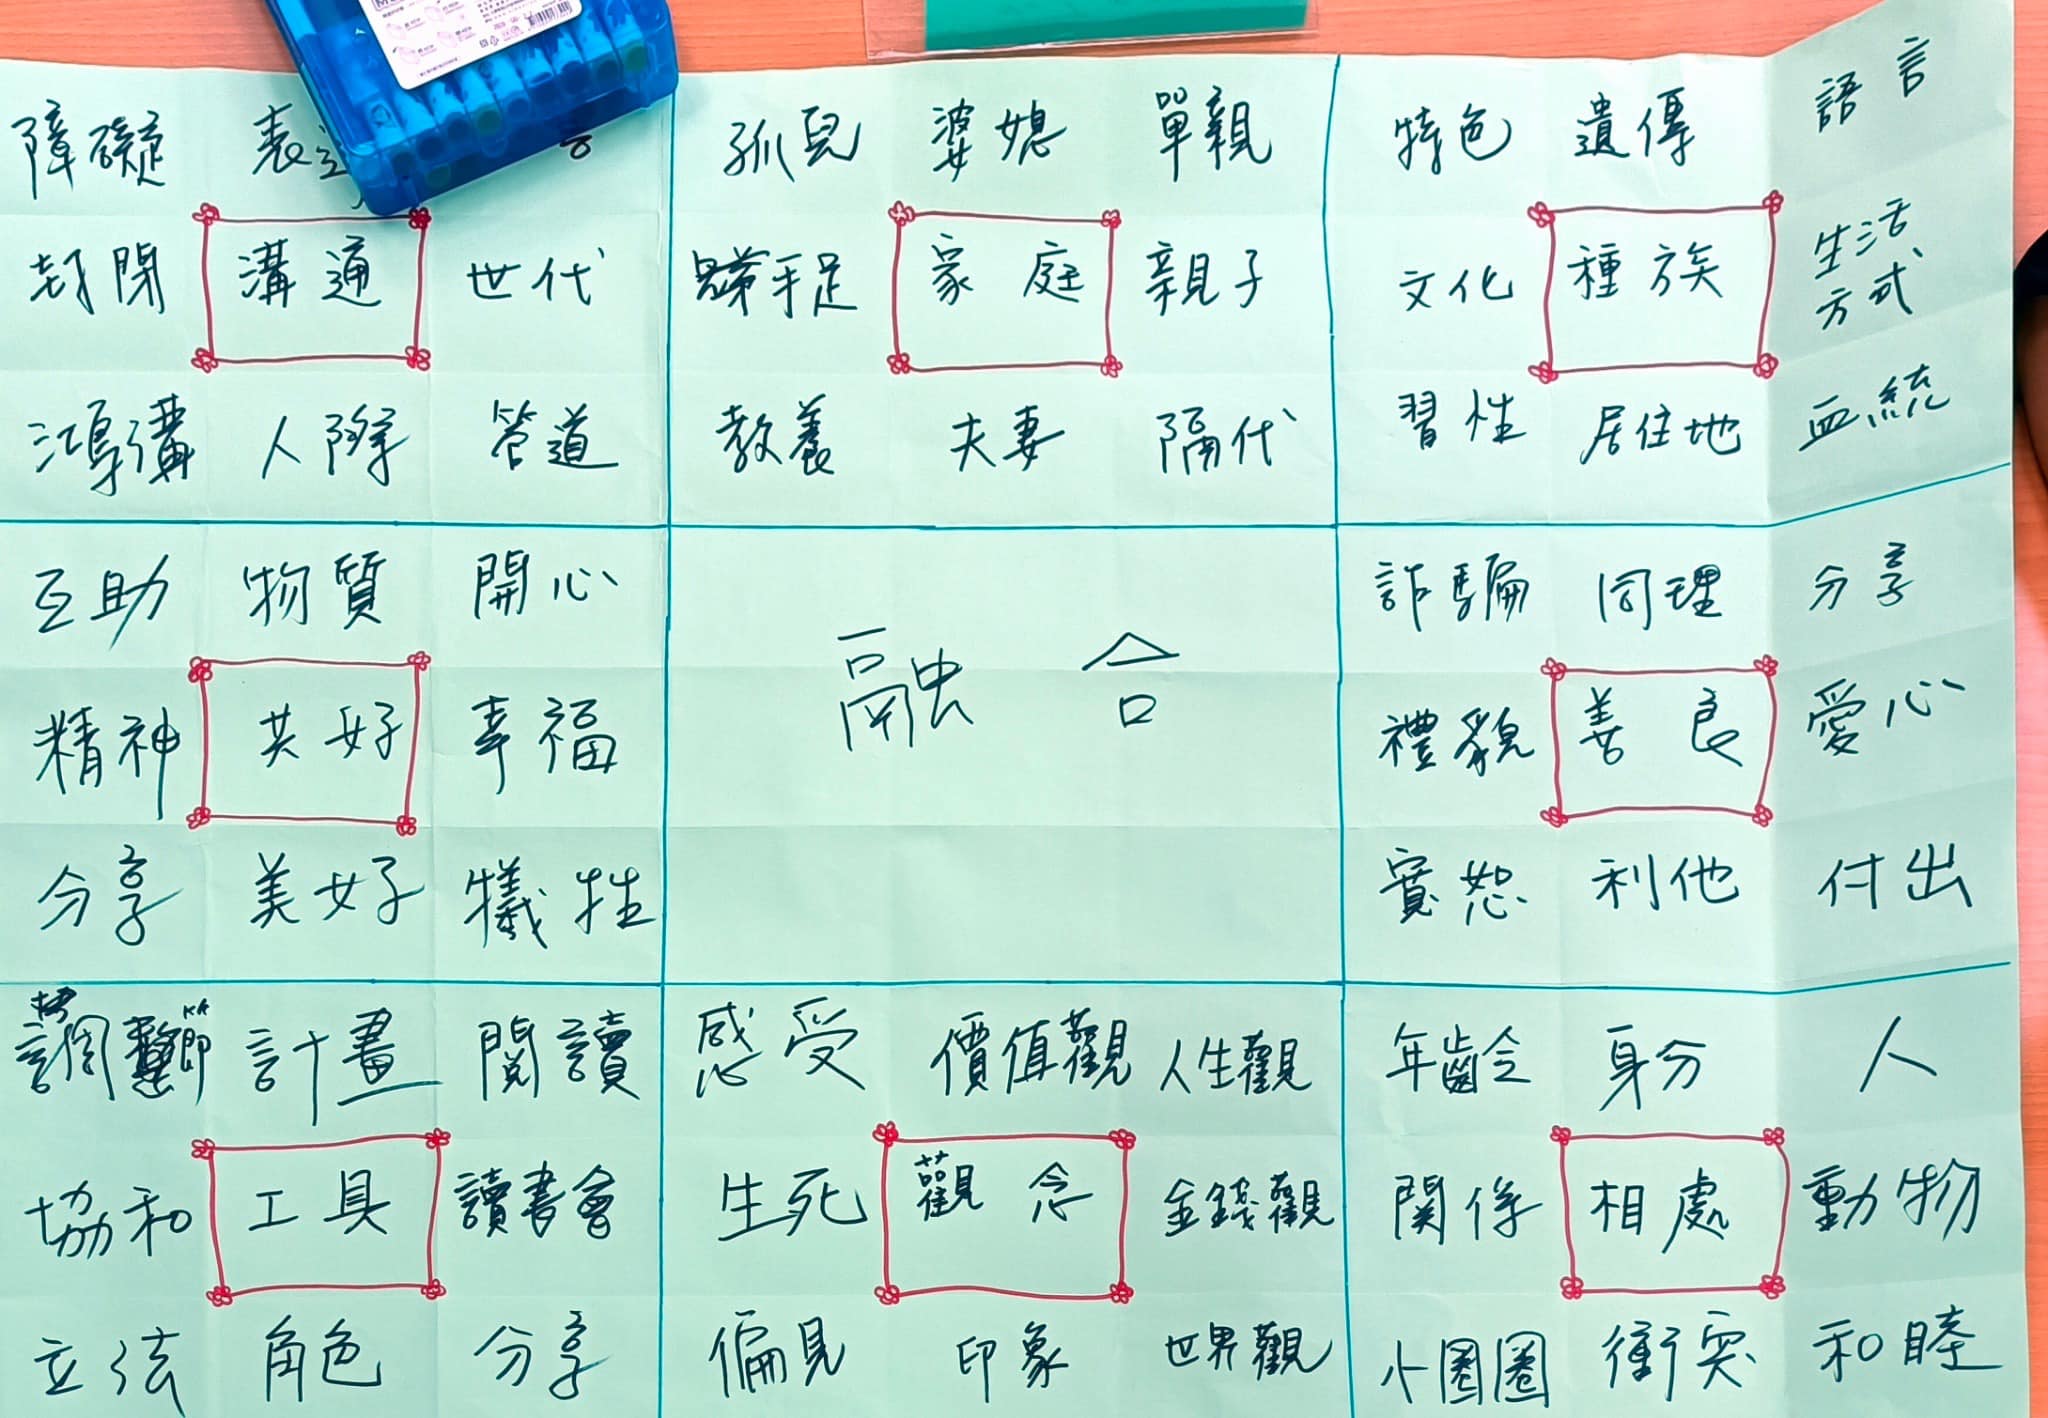 障礙 表
封閉 溝通 世代
鴻溝 人際 管道
孤兒 婆媳 單親
手足 家庭 親子
教養 夫妻 隔代
特色 遺傳 語言
文化 種族 生活
方式
習性 居住地 血統
互助 物質 開心
精神 共好 幸福
分享 美好 犧牲
融合
詐騙 同理 分享
禮貌 善良 愛心
寬恕 利他 付出
計畫 閱讀
協和 工具 讀書會
立法 角色 分享
感受 價值觀 人生觀
生死 觀念 金錢觀
偏見 印象 世界觀
年齡 身分 人
関係 相處 動物
小圈圈 衝突 和睦